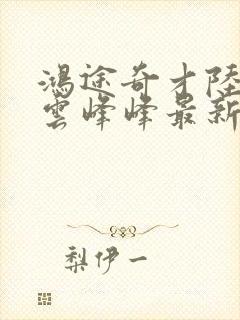 鴻途奇才陸
雲峰峰最新
梨伊一